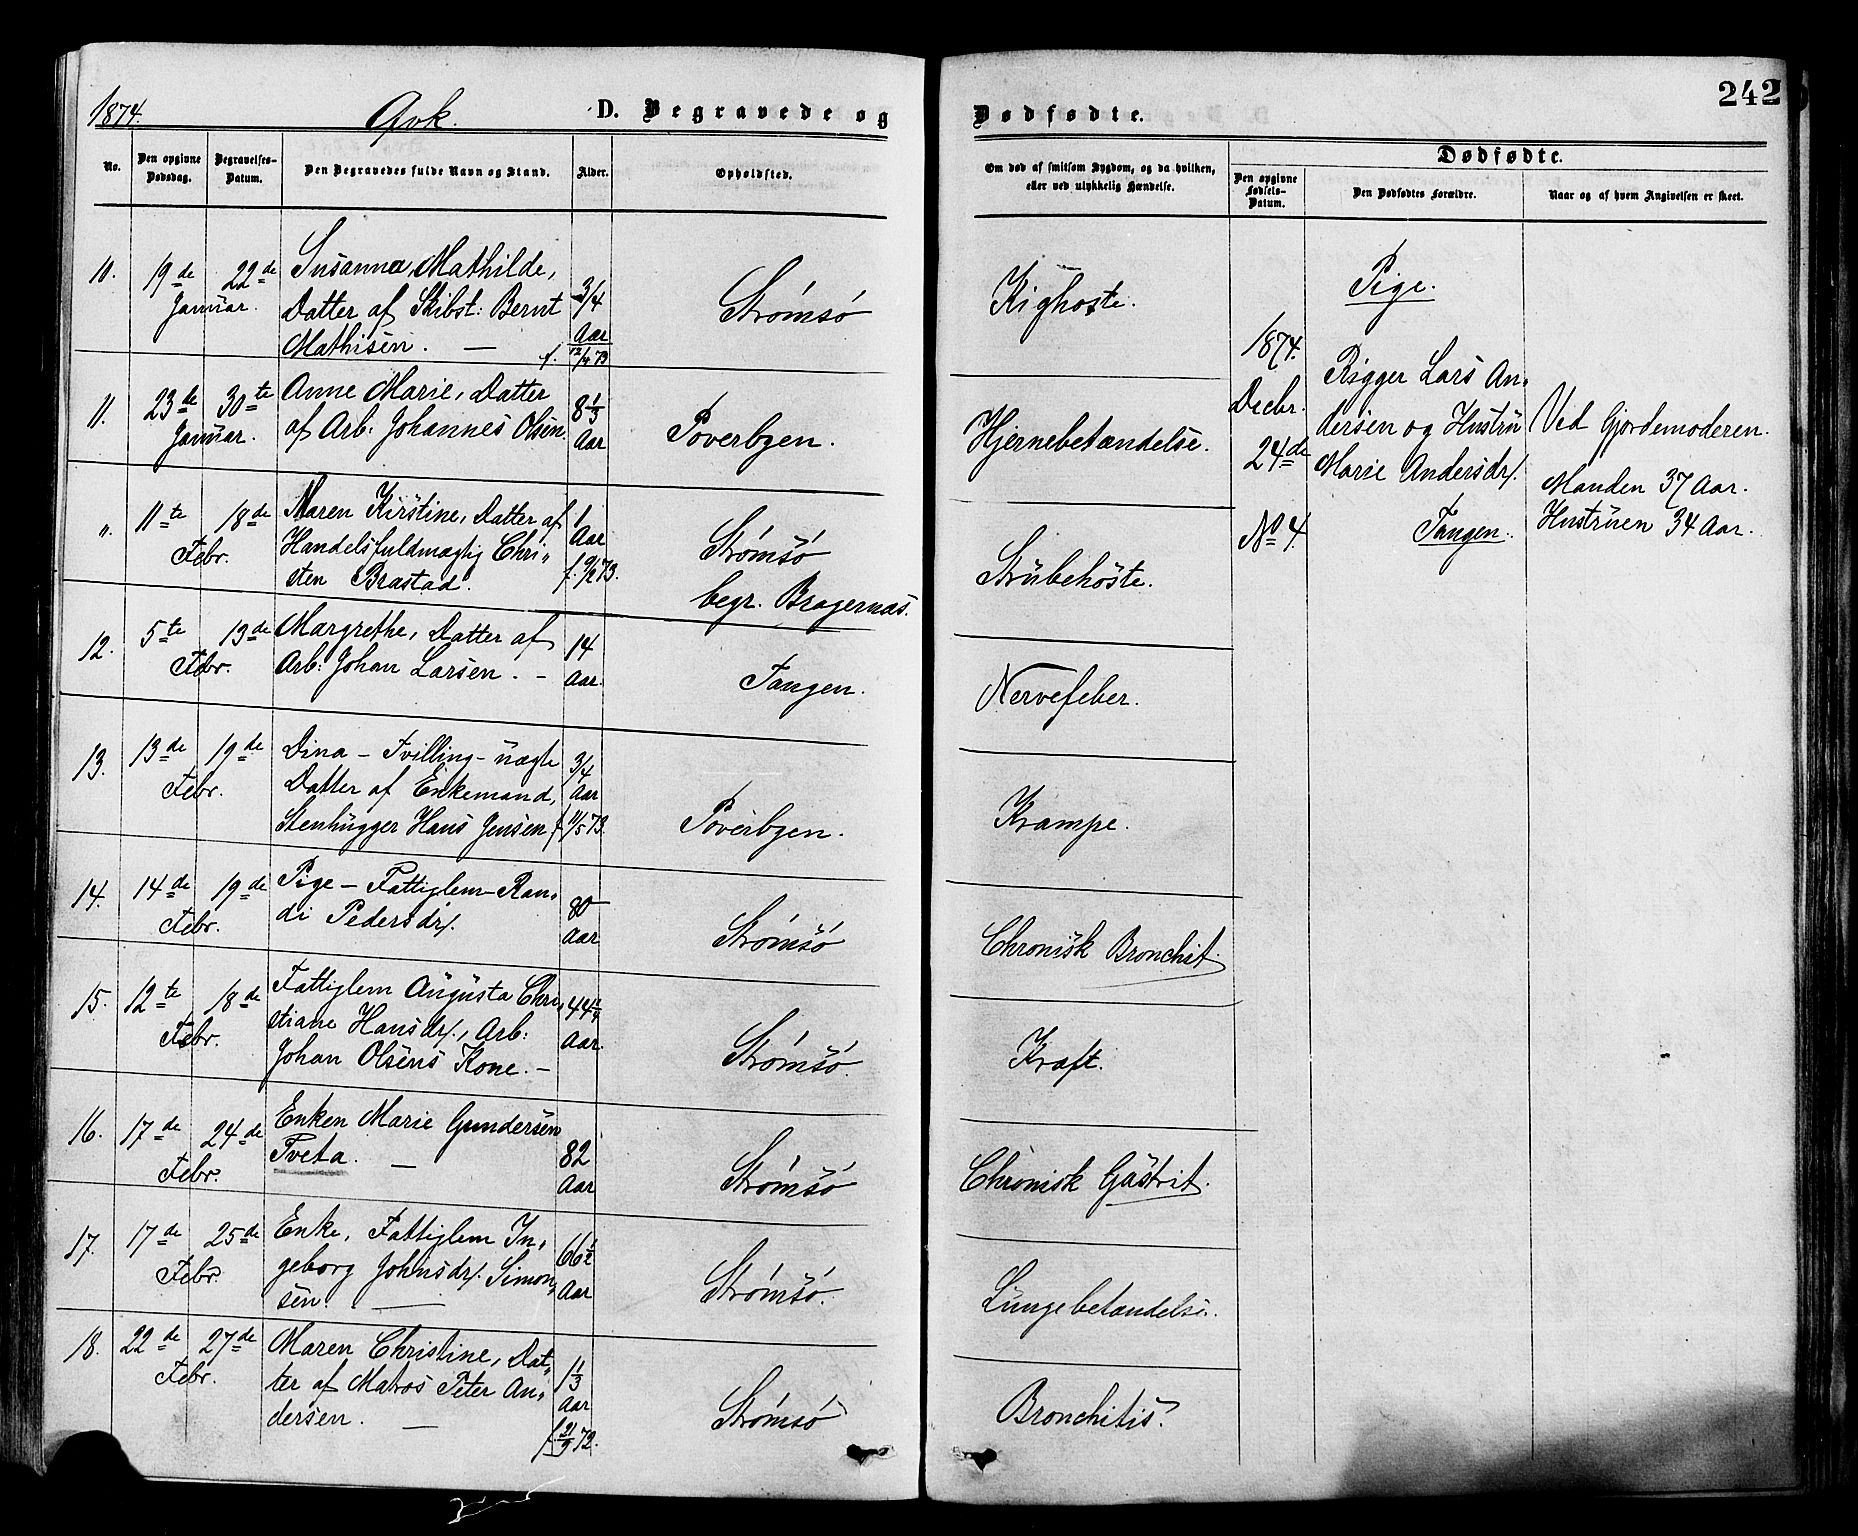 1874. Qvk. D. Begravede og
No.
Den opgivne Dødsdag.
Begravelses-Datum.
Den Begravedes fulde Navn og Stand.
Alder.
Opholdsted.
10. 19de 22de Januar.
Susanna Mathilde,
Datter af Skibst: Bernt
Mathisen. —
3/4
Aar
f. 12/4 73
Strømsö
11. 23de 30te Januar.
Anne Marie, Datter
af Arb. Johannes Olsen.
8 1/3
Aar
Toverbgen.
". 11te 18de Febr.
Maren Kirstine, Datter af
Handelsfuldmægtig Chri-
sten Brastad.
1
Aar
73.
Strømsö
begr. Bragernæs.
12. 5te 13de Febr.
Margrethe, Datter af
Arb: Johan Larsen. -
14
Aar.
Tangen.
13. 13de 19de Febr.
Dina - Tvilling - uægte
Datter af Enkemand,
Stenhugger Hans Jensen
3/4
Aar
f. 11/5 73.
Toverbgen.
14. 14de 19de Febr.
Pige - Fattiglem - Ran-
di Pedersdr.
80
Aar
Strømsö
15. 12te 18de Febr.
Fattiglem Augusta Chri-
stiane Hansdr., Arb:
Johan Olsens Kone. -
Aar.
Strømsö.
16. 17de 24de Febr.
Enken Marie Gundersen
Tveta. —
82
Aar
Strømsö
17. 17de 25de Febr.
Enke, Fattiglem In-
geborg Johnsdr. Simon-
sen. —
66 1/2
Aar
Strømsö.
18. 22de 27de Febr.
Maren Christine, Dat-
ter af Matros Peter An-
dersen. —
1 1/3
Aar
f. 21/9 72.
Strømsö
Dødfødte.
242
Om død af smitsom Sygdom, og da hvilken,
eller ved ulykkelig Hændelse.
Dødfødte.
Den opgivne Fødsels-Datum.
Den Dødfødtes Forældre.
Naar og af hvem Angivelsen er skeet.
Kighoste.
Hjernebetændelse.
Strubehoste.
Nervefeber.
Krampe.
Chronisk Bronchit.
Kræft.
Chronisk Gastrit.
Lungebetændelse.
Bronchitis.
1874.
Decbr.
24de
No 4.
Pige.
Rigger Lars An-
dersen og Hustru
Marie Andersdr.
Tangen.
Ved Gjordemoderen.
Manden 37 Aar.
Hustruen 34 Aar.